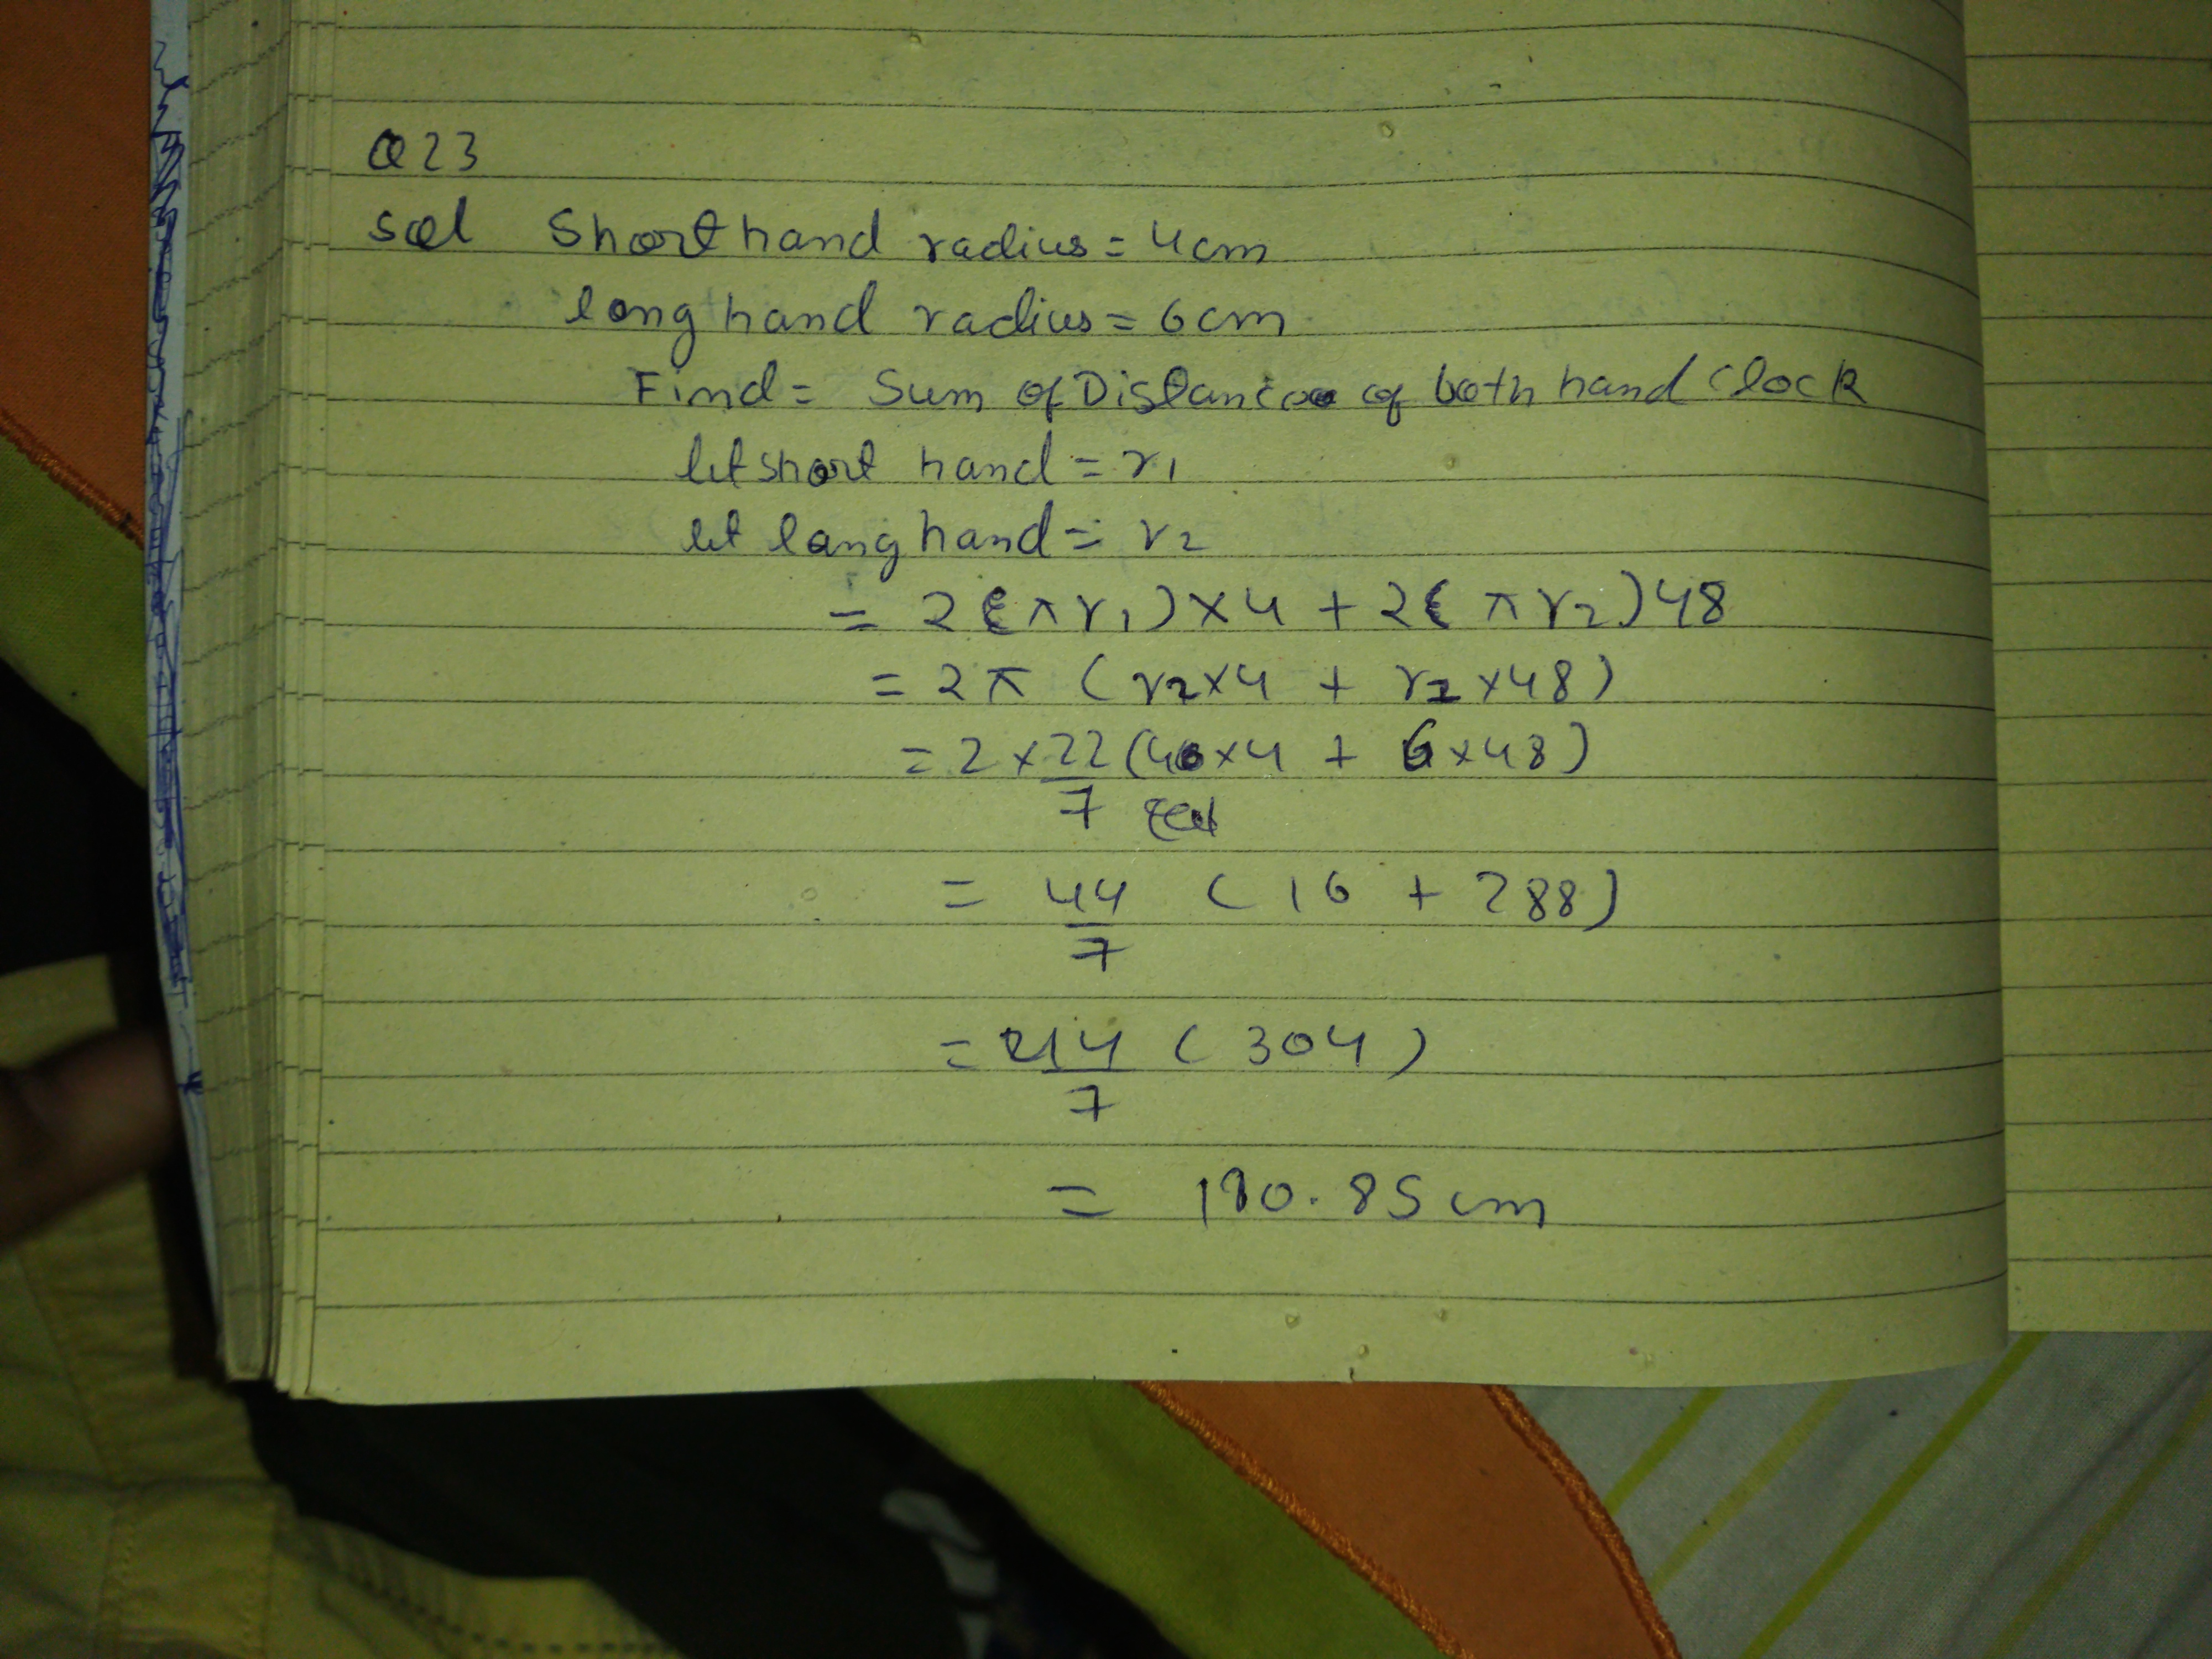 Q23
sol Short hand radius = 4cm
long hand radius = 6cm
Find = Sum of Distance of both hand clock
let short hand = r₁
let long hand = r₂
= 2(πr₁)×4 + 2(πr₂)48
= 2π (r₂×4 + r₂×48)
= 2×22/7 (4×4 + 6×48)
= 44/7 (16 + 288)
= 44/7 (304)
= 190.85cm